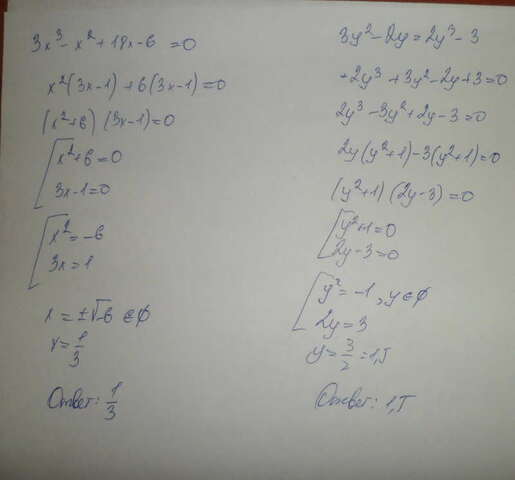 3x³ - x² + 18x - 6 = 0
x²(3x-1) + 6(3x-1) = 0
(x²+6)(3x-1) = 0
x²+6=0
3x-1=0
x² = -6
3x = 1
x = ±√-6 ∈ ∅
x = 1/3
Ответ: 1/3
3y² - 2y = 2y³ - 3
-2y³ + 3y² - 2y + 3 = 0
2y³ - 3y² + 2y - 3 = 0
2y(y²+1) - 3(y²+1) = 0
(y²+1)(2y-3) = 0
y²+1=0
2y-3=0
y² = -1, y ∈ ∅
2y = 3
y = 3/2 = 1,5
Ответ: 1,5